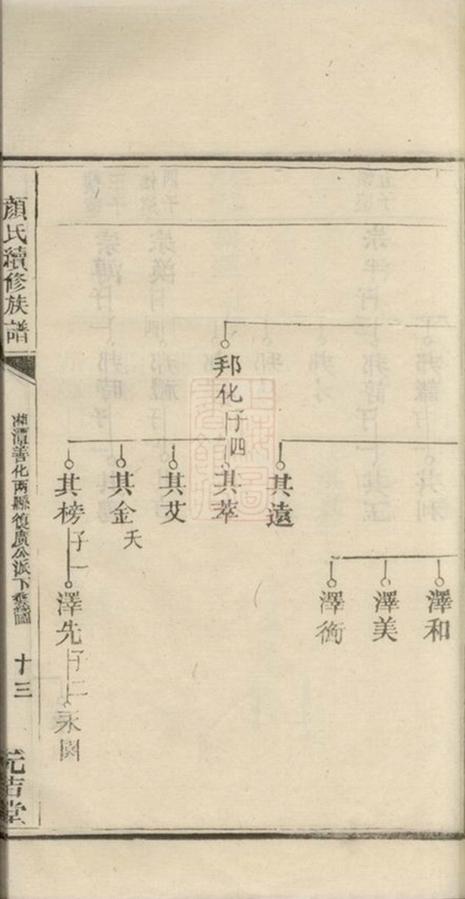 澤和
澤美
澤衡
其遠
邦化子四
其萃
其艾
其金天
其榜子一
澤先子二
永園
顏氏續修族譜
湘潭善化兩縣復廣公派下系圖
十三
元吉堂